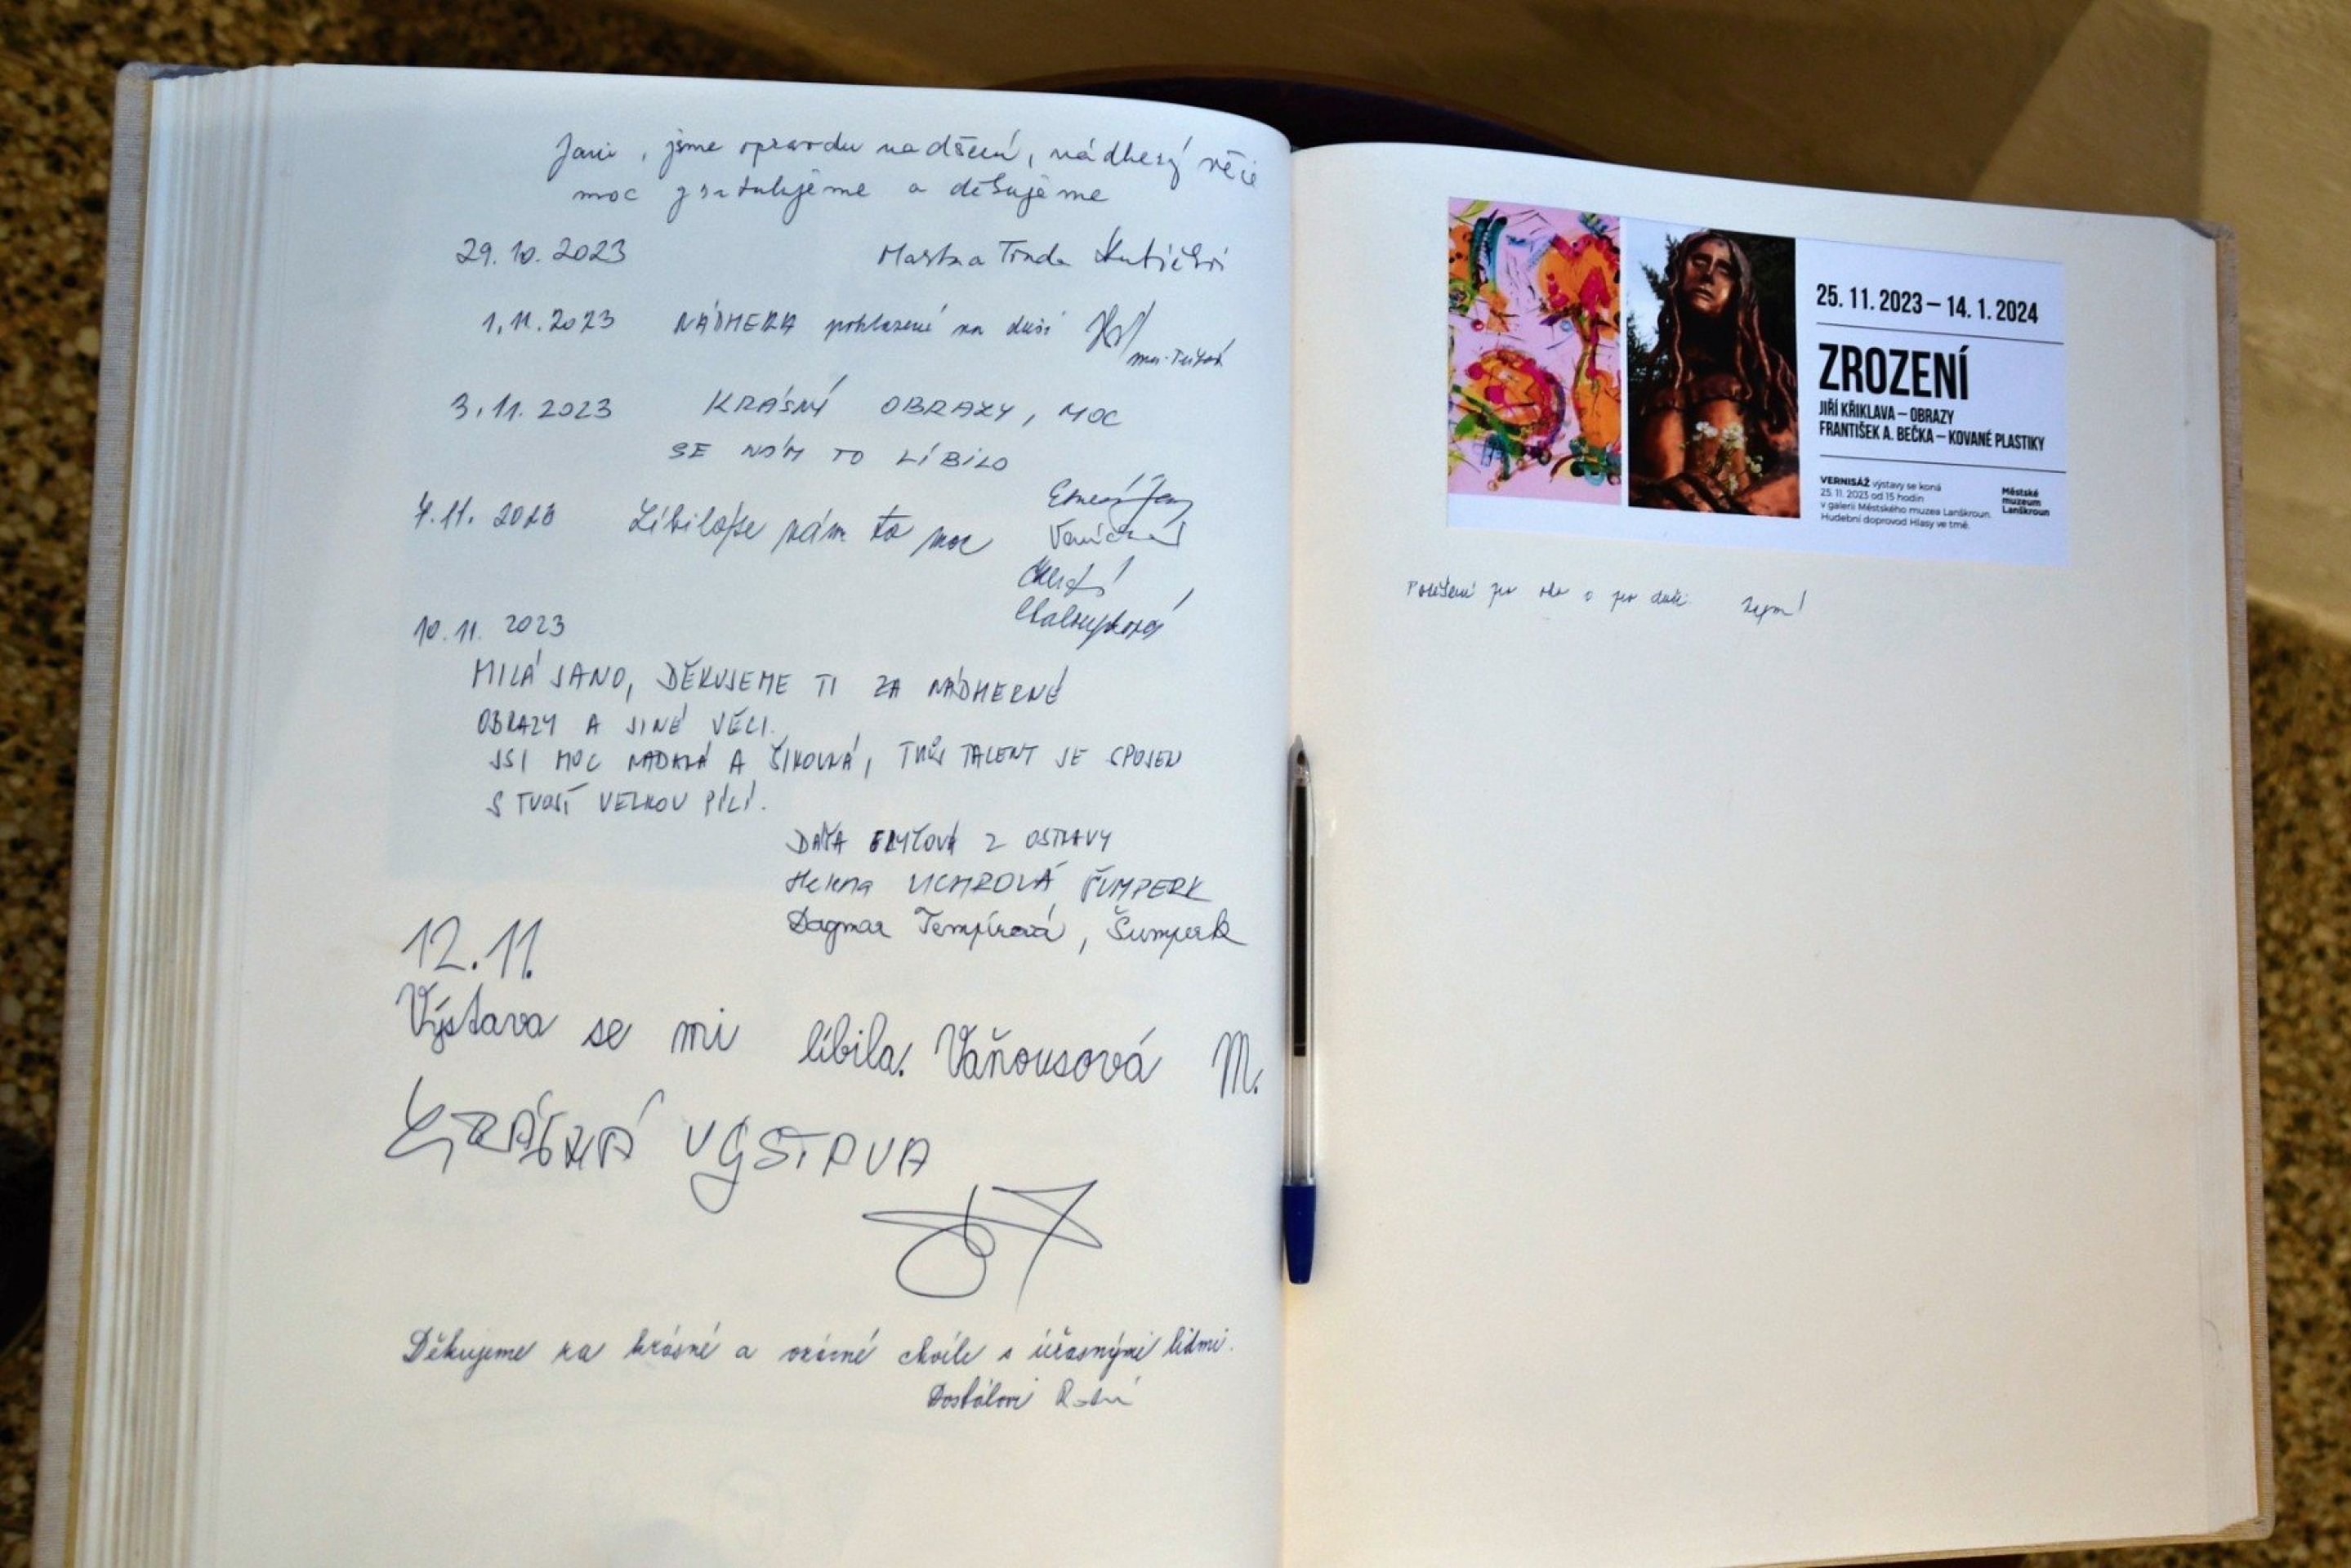 Jani, jsme opravdu nadšení, nádherný věci
moc gratulujeme a děkujeme
29. 10. 2023
1. 11. 2023 NÁDHERA pohlazení na duši
3. 11. 2023 KRÁSNÝ OBRAZY, MOC
SE NÁM TO LÍBILO
4. 11. 2023 Líbilo se nám to moc
10. 11. 2023
MILÁ JANO, DĚKUJEME TI ZA NÁDHERNÉ
OBRAZY A JINÉ VĚCI.
JSI MOC NADANÁ A ŠIKOVNÁ, TVŮJ TALENT JE SPOJEN
S TVOJÍ VELKOU PÍLÍ.
Z OSTRAVY
Helena ŠUMPERK
Dagmar Tempírová, Šumperk
12. 11.
Výstava se mi líbila. Vaňousová M.
KRÁSNÁ VÝSTAVA
Děkujeme za krásné a vzácné chvíle s úžasnými lidmi.
Dostálovi
25. 11. 2023 – 14. 1. 2024
ZROZENÍ
JIŘÍ KŘIKLAVA – OBRAZY
FRANTIŠEK A. BEČKA – KOVANÉ PLASTIKY
VERNISÁŽ výstavy se koná
25. 11. 2023 od 15 hodin
v galerii Městského muzea Lanškroun.
Hudební doprovod Hlasy ve tmě.
Městské
muzeum
Lanškroun
Potěšení pro oko i pro duši.